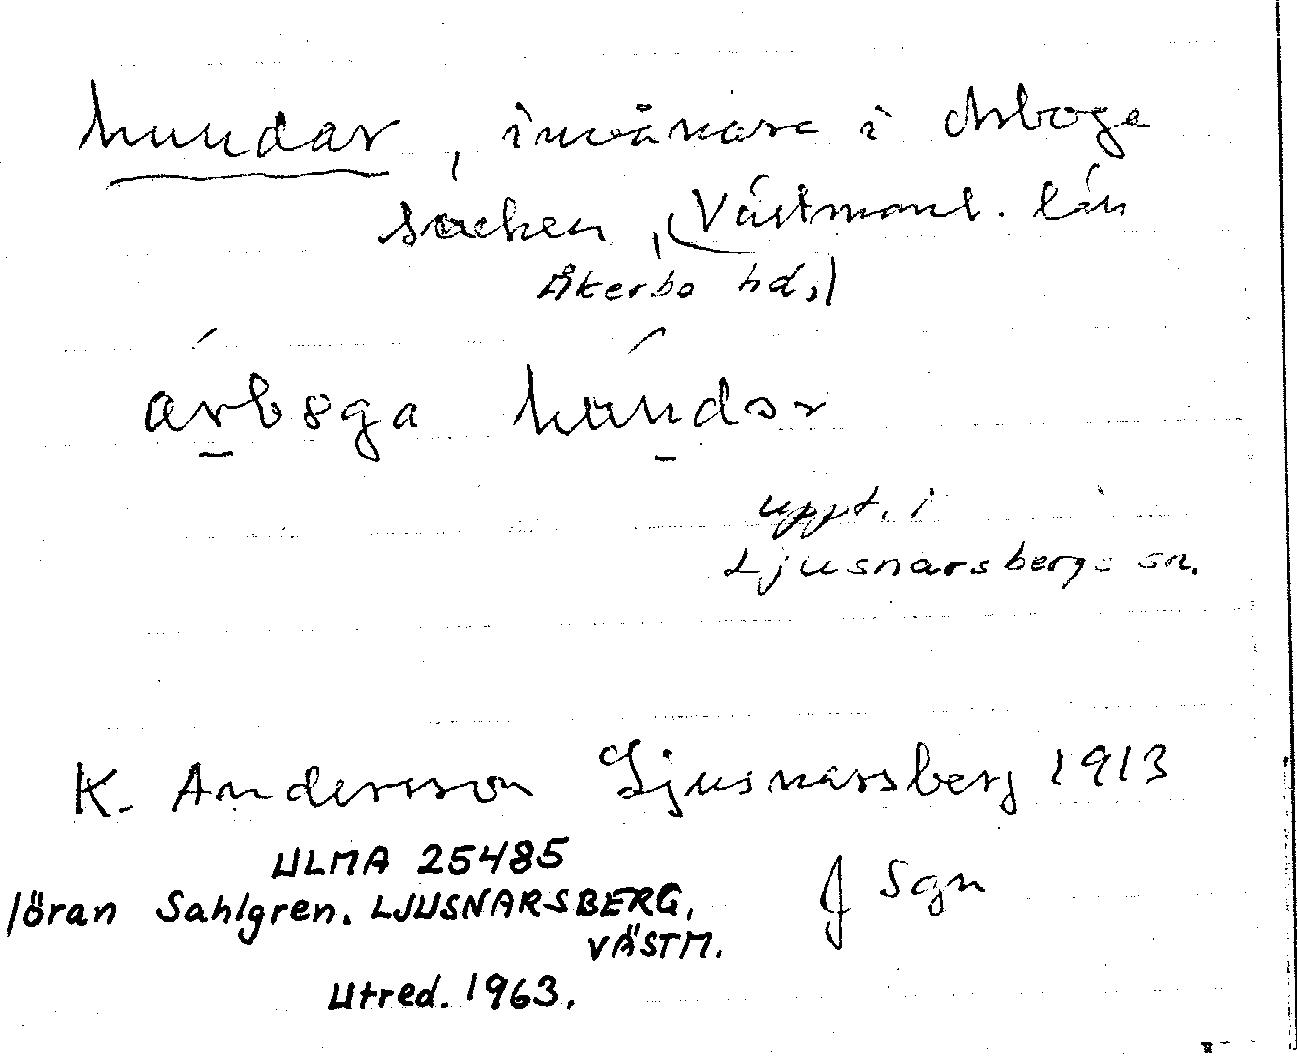 hundar, invånare i Arboga
socken, Västmanl. län
Åkerbo hd,
árboga húndar
uppt. i
Ljusnarsbergs sn.
K. Andersson Ljusnarsberg 1913
ULMA 25485
Jöran Sahlgren. LJUSNARSBERG,
VÄSTM.
Utred. 1963.
J Sgn